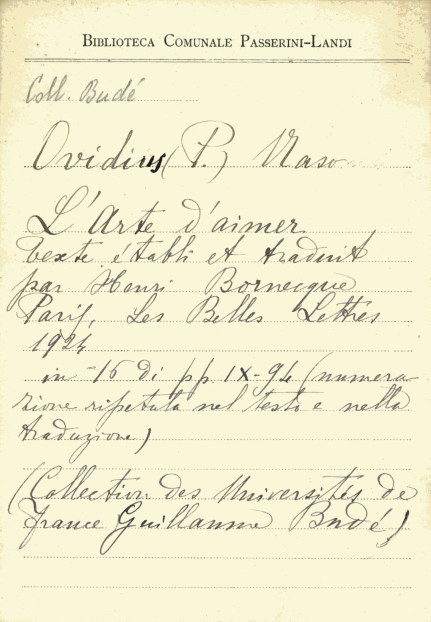 BIBLIOTECA COMUNALE PASSERINI-LANDI
Coll. Budé
Ovidius (P.) Naso
L'Arte d'aimer
texte établi et traduit
par Henri Bornecque
Paris, Les Belles Lettres
1924
in-16 di pp. IX-94 (numera-
zione ripetuta nel testo e nella
traduzione)
(Collection des Universités de
France Guillaume Budé)